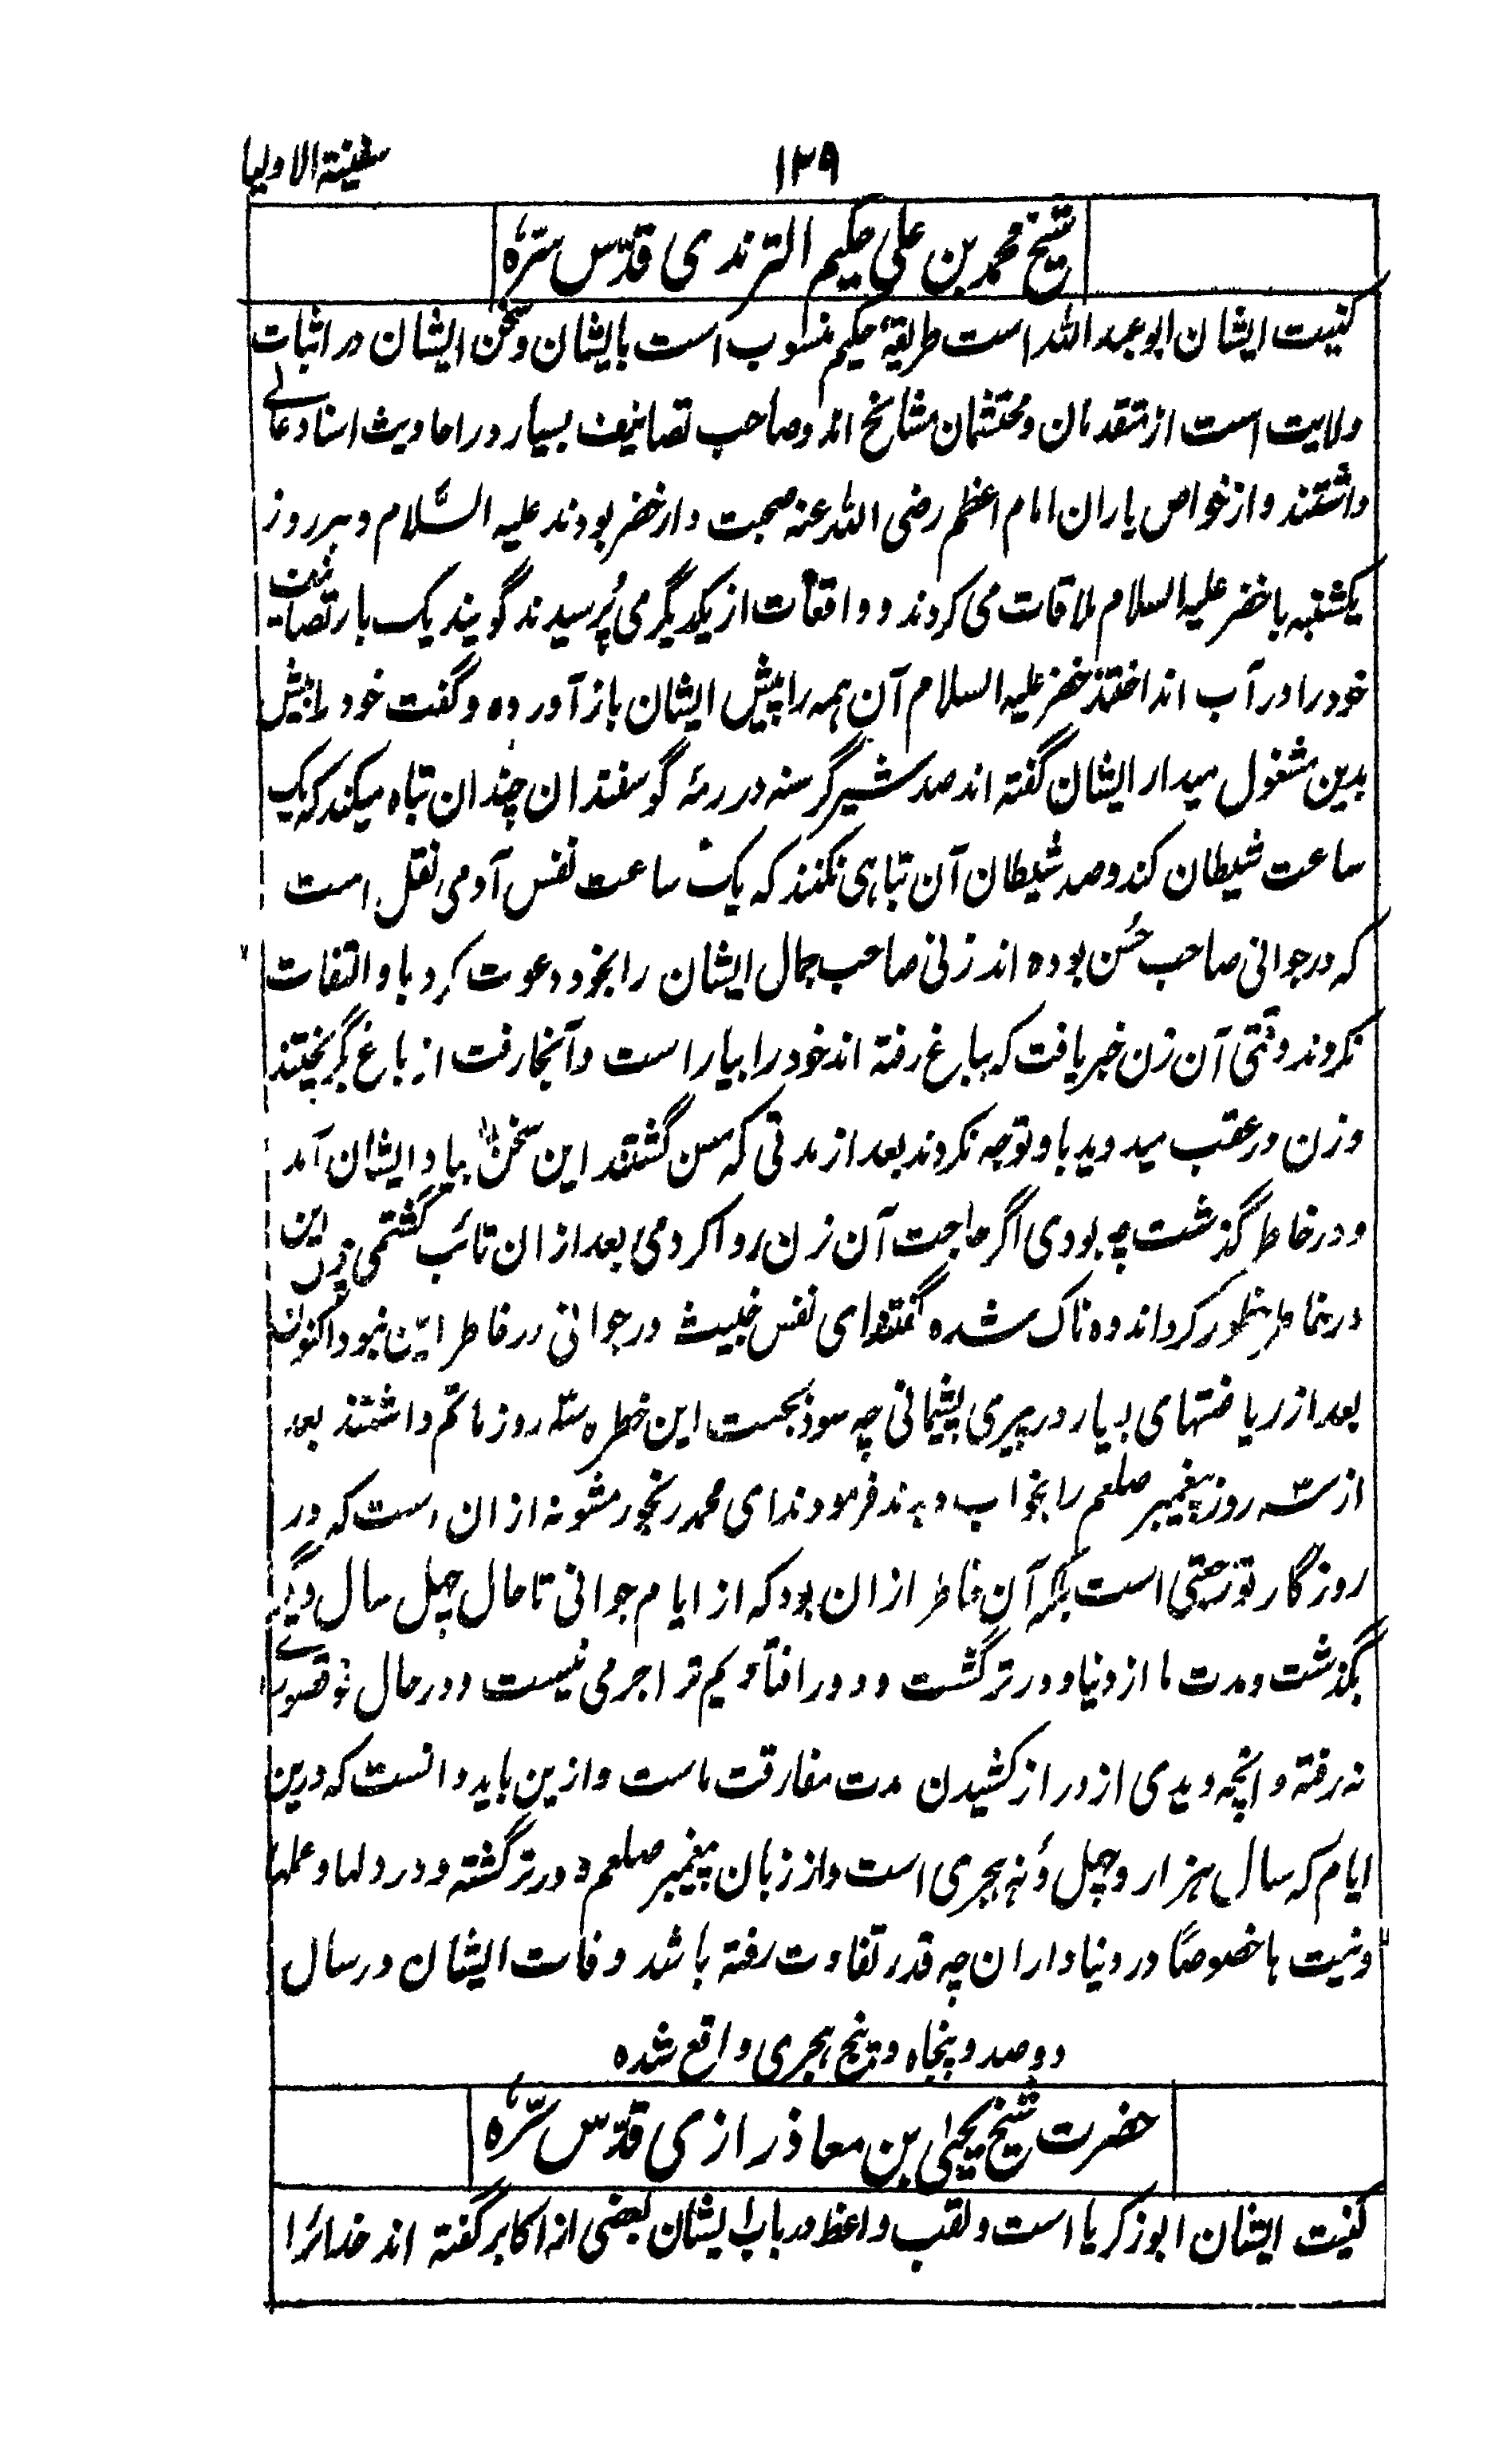 ۱۲۹ سفینة الاولیا
شیخ محمد بن علی حکیم الترندی قدّس سّرهٗ
کنیت ایشان ابوعبد اللہ است طریقهٔ حکیم منسوب است بایشان و سخن ایشان در اثبات
ولایت است از متقدمان و محتشمان مشائخ اند و صاحب تصانیف بسیار و در احادیث اسناد عالے
داشتند و از خواص یاران امام اعظم رضی اللہ عنہ صحبت دار خضر بودند علیہ السّلام و ہر روز
یکشنبہ با خضر علیہ السلام ملاقات می کردند و واقعات از یکدیگر می پُرسیدند گویند یک بار تصانیف
خود را در آب انداختند خضر علیہ السلام آن ہمہ را پیش ایشان باز آوردہ و گفت خود را بیش
بدین مشغول میدار ایشان گفتہ اند صد شیر گرسنہ در رمۂ گوسفندان چندان تباہ میکند کہ یک
ساعت شیطان کند و صد شیطان آن تباہی نکنند کہ یک ساعت نفس آدمی نقل است
کہ در جوانی صاحب حُسن بودہ اند زنی صاحب جمال ایشان را بخود دعوت کرد باو التفات
نکردند وقتی آن زن خبر یافت کہ بباغ رفتہ اند خود را بیاراست و آنجا رفت از باغ گریختند
و زن در عقب میدوید باو توجہ نکردند بعد از مدتی کہ مسن گشتند این سخن بیاد ایشان آمد
و در خاطر گذشت چہ بودی اگر حاجت آن زن روا کردمی بعد ازان تائب گشتمی چون این
در خاطر خطور کرد اندوہ ناک شدہ گفتند ای نفس خبیث در جوانی در خاطر این نبود اکنون
بعد از ریاضتهای بسیار در پیری پشیمانی چہ سود بجہت این خطرہ سہ روز ماتم داشتند بعد
از سہ روز پیغمبر صلعم را بخواب دیدند فرمودند ای محمد رنجور مشو نہ ازان است کہ در
روزگار تو رجعتی است بلکہ آن خاطر ازان بود کہ از ایام جوانی تا حال چہل سال دیگر
بگذشت و مدت ما از دنیا دور تر گشت و دور افتادیم ترا جرمی نیست و در حال تو قصورے
نہ رفتہ و انچہ دیدی از دراز کشیدن مدت مفارقت ماست و ازین باید دانست کہ درین
ایام کہ سال ہزار و چہل و نہ ہجری است و از زبان پیغمبر صلعم دور تر گشتہ و در دلها و عملها
و نیت ہا خصوصاً در دنیا داران چہ قدر تفاوت رفتہ باشد وفات ایشان در سال
دوصد و پنجاہ و پنج ہجری واقع شدہ
حضرت شیخ یحییٰ بن معاذ رازی قدّس سّرهٗ
کنیت ایشان ابو زکریا است و لقب واعظ در باب ایشان بعضی از اکابر گفتہ اند خدائرا